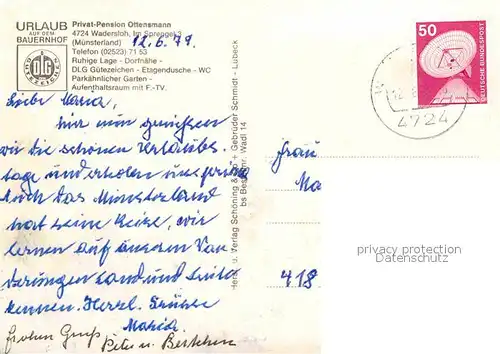 URLAUB
AUF DEM
BAUERNHOF
Privat-Pension Ottensmann
4724 Wadersloh, Im Sprengel 3
(Münsterland) 12.6.79.
Telefon (02523) 71 53
Ruhige Lage - Dorfnähe -
DLG Gütezeichen - Etagendusche - WC
Parkähnlicher Garten -
Aufenthaltsraum mit F.-TV.
DLG
GÜTEZEICHEN
50
DEUTSCHE BUNDESPOST
4724
Liebe Maria,
Wir nun genießen
wir die schönen Urlaubs-
tage und erholen uns prima
Auch das Münsterland
hat seine Reize, wir
lernen auf unseren Wan
derungen Land und Leute
kennen. Herzl. Grüsse
Maria.
frohen Gruß
Peter u.
Herst. u. Verlag Schöning & Co + Gebrüder Schmidt - Lübeck
Wadl 14
Frau
Ma
418
privacy protection
Datenschutz